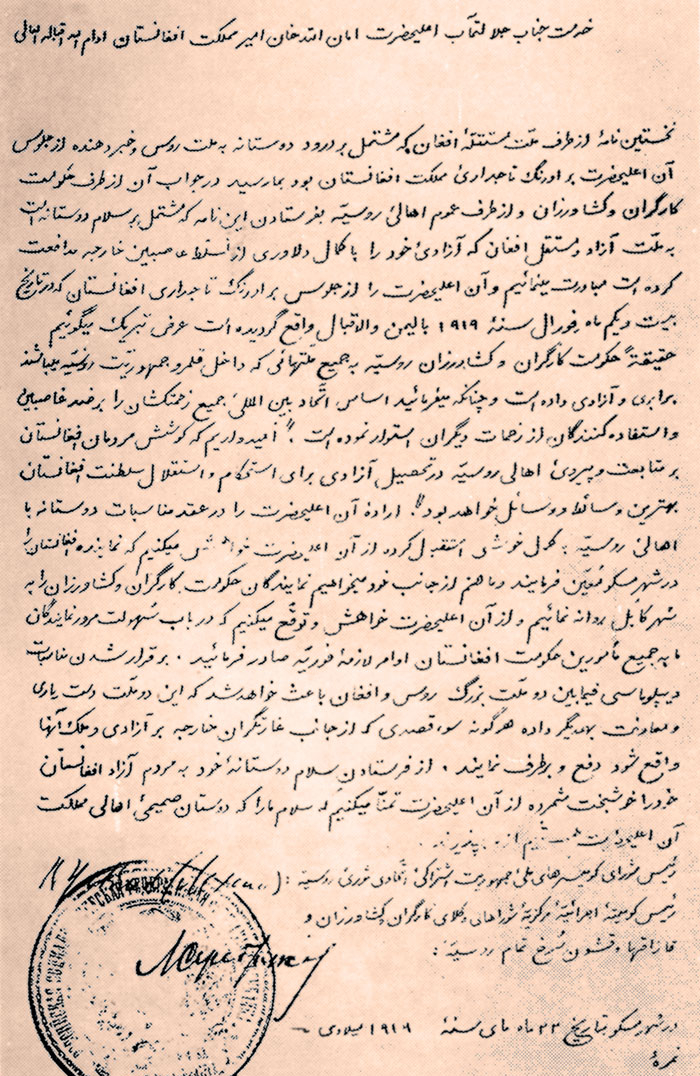 خدمت جناب جلالتمآب اعلیحضرت امان الله خان امیر مملکت افغانستان ادام الله اقباله العالی
نخستین نامهٔ از طرف ملّت مستقلهٔ افغان که مشتمل بر درود دوستانه به ملت روس و خبر دهنده از جلوس
آن اعلیحضرت بر اورنگ تاجداریٔ مملکت افغانستان بود بما رسید در جواب آن از طرف حکومت
کارگران و کشاورزان و از طرف عموم اهالیٔ روسیّه بفرستادن این نامه که مشتمل بر سلام دوستانه است
به ملّت آزاد و مستقل افغان که آزادیٔ خود را با کمال دلاوری از تسلط غاصبین خارجه مدافعت
کرده است مبادرت مینمائیم و آن اعلیحضرت را از جلوس بر اورنگ تاجداری افغانستان که در تاریخ
بیست و یکم ماه فورال سنهٔ ۱۹۱۹ بالیمن والاقبال واقع گردیده است عرض تبریک میگوئیم
حقیقةً حکومت کارگران و کشاورزان روسیّه به جمیع ملتهائی که داخل قلمرو جمهوریّت روسیّه میباشند
برابری و آزادی داده است و چنانکه میفرمائید اساس اتّحاد بین المللیٔ جمیع زحمتکشان را بر ضد غاصبین
و استفاده کنندگان از زحمات دیگران استوار نموده است . امیدواریم که کوشش مردمان افغانستان
بر متابعت و پیرویٔ اهالی روسیّه در تحصیل آزادی برای استحکام و استقلال سلطنت افغانستان
بهترین وسائط و وسائل خواهد بود . ارادهٔ آن اعلیحضرت را در عقد مناسبات دوستانه با
اهالیٔ روسیّه بکمال خوشی استقبال کرده از آن اعلیحضرت خواهش میکنیم که نمایندهٔ افغانستان را
در شهر مسکو معیّن فرمایند و ما هم از جانب خود میخواهیم نمایندگان حکومت کارگران و کشاورزان را به
شهر کابل روانه نمائیم و از آن اعلیحضرت خواهش و توقّع میکنیم که در باب سهولت مرور نمایندگان
ما به جمیع مأمورین حکومت افغانستان اوامر لازمهٔ فوریّه صادر فرمائید . برقرار شدن مناسبات
دیپلوماسی فیمابین دو ملّت بزرگ روس و افغان باعث خواهد شد که این دو ملّت دست یاری
و معاونت بهمدیگر داده هر گونه سوء قصدی که از جانب غارتگران خارجه بر آزادی و ملک آنها
واقع شود دفع و برطرف نمایند . از فرستادن سلام دوستانهٔ خود به مردم آزاد افغانستان
خود را خوشبخت شمرده از آن اعلیحضرت تمنّا میکنیم که سلام ما را که دوستان صمیمیٔ اهالی مملکت
آن اعلیحضرت هستیم
رئیس شورای کومیسرهای ملّی جمهوریت اشتراکیٔ اتحادی شورئ روسیّه :
رئیس کومیتهٔ اجرائیهٔ مرکزیهٔ شوراهای وکلای کارگران و کشاورزان و
قازاقها و قشون سرخ تمام روسیّه :
در شهر مسکو بتاریخ ۲۳ ماه مای سنهٔ ۱۹۱۹ میلادی
نمرهٔ